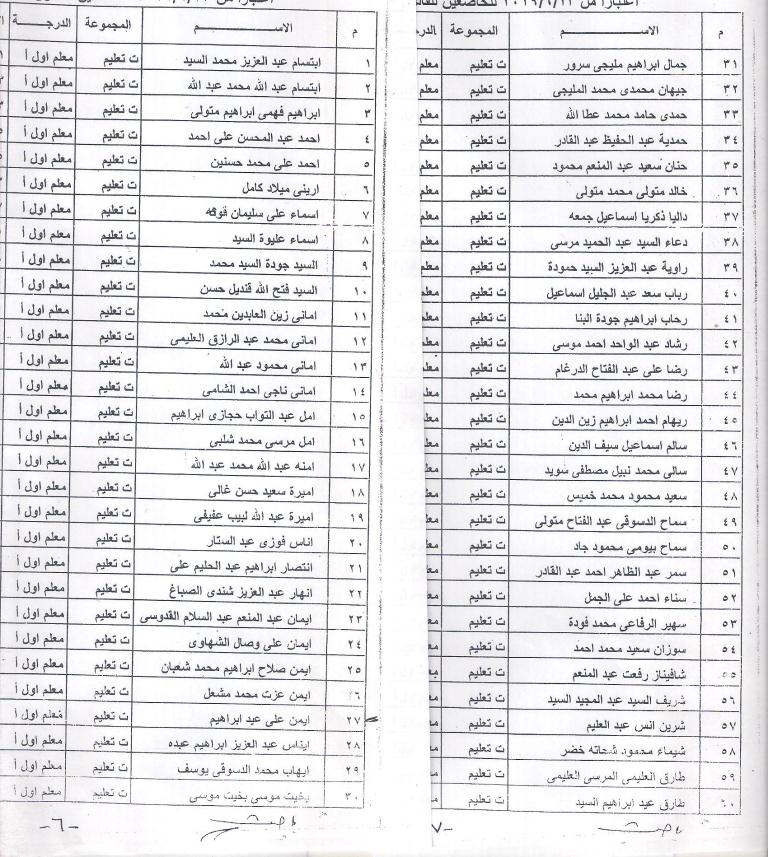 م الاســـــــم المجموعة الدرجة
١ ابتسام عبد العزيز محمد السيد ت تعليم معلم اول أ
٢ ابتسام عبد الله محمد عبد الله ت تعليم معلم اول أ
٣ ابراهيم فهمى ابراهيم متولى ت تعليم معلم اول أ
٤ احمد عبد المحسن على احمد ت تعليم معلم اول أ
٥ احمد على محمد حسنين ت تعليم معلم اول أ
٦ ارينى ميلاد كامل ت تعليم معلم اول أ
٧ اسماء على سليمان ت تعليم معلم اول أ
٨ اسماء عليوة السيد ت تعليم معلم اول أ
٩ السيد جودة السيد محمد ت تعليم معلم اول أ
١٠ السيد فتح الله قنديل حسن ت تعليم معلم اول أ
١١ امانى زين العابدين محمد ت تعليم معلم اول أ
١٢ امانى محمد عبد الرازق العليمى ت تعليم معلم اول أ
١٣ امانى محمود عبد الله ت تعليم معلم اول أ
١٤ امانى ناجى احمد الشامى ت تعليم معلم اول أ
١٥ امل عبد التواب حجازى ابراهيم ت تعليم معلم اول أ
١٦ امل مرسى محمد شلبى ت تعليم معلم اول أ
١٧ امنه عبد الله محمد عبد الله ت تعليم معلم اول أ
١٨ اميرة سعيد حسن غالى ت تعليم معلم اول أ
١٩ اميرة عبد الله لبيب عفيفى ت تعليم معلم اول أ
٢٠ اناس فوزى عبد الستار ت تعليم معلم اول أ
٢١ انتصار ابراهيم عبد الحليم على ت تعليم معلم اول أ
٢٢ انهار عبد العزيز شندى الصباغ ت تعليم معلم اول أ
٢٣ ايمان عبد المنعم عبد السلام القدوسى ت تعليم معلم اول أ
٢٤ ايمان على وصال الشهاوى ت تعليم معلم اول أ
٢٥ ايمن صلاح ابراهيم محمد شعبان ت تعليم معلم اول أ
٦ ايمن عزت محمد مشعل ت تعليم معلم اول أ
٢٧ ايمن على عيد ابراهيم ت تعليم معلم اول أ
٢٨ ايناس عبد العزيز ابراهيم عبده ت تعليم معلم اول أ
٢٩ ايهاب محمد الدسوقى يوسف ت تعليم معلم اول أ
٣٠ بخيت موسى بخيت موسى ت تعليم معلم اول أ
-٦-
م الاســـــــم المجموعة الدر
٣١ جمال ابراهيم مليجى سرور ت تعليم معلم
٣٢ جيهان محمدى محمد المليجى ت تعليم معلم
٣٣ حمدى حامد محمد عطا الله ت تعليم معلم
٣٤ حمدية عبد الحفيظ عبد القادر ت تعليم معلم
٣٥ حنان سعيد عبد المنعم محمود ت تعليم معلم
٣٦ خالد متولى محمد متولى ت تعليم معلم
٣٧ داليا ذكريا اسماعيل جمعه ت تعليم معلم
٣٨ دعاء السيد عبد الحميد مرسى ت تعليم معلم
٣٩ راوية عبد العزيز السيد حمودة ت تعليم معلم
٤٠ رباب سعد عبد الجليل اسماعيل ت تعليم معلم
٤١ رحاب ابراهيم جودة البنا ت تعليم معلم
٤٢ رشاد عبد الواحد احمد موسى ت تعليم معلم
٤٣ رضا على عبد الفتاح الدرغام ت تعليم معلم
٤٤ رضا محمد ابراهيم محمد ت تعليم معلم
٤٥ ريهام احمد ابراهيم زين الدين ت تعليم معلم
٤٦ سالم اسماعيل سيف الدين ت تعليم معل
٤٧ سالى محمد نبيل مصطفى سويد ت تعليم معل
٤٨ سعيد محمود محمد خميس ت تعليم معل
٤٩ سماح الدسوقى عبد الفتاح متولى ت تعليم معل
٥٠ سماح بيومى محمود جاد ت تعليم معل
٥١ سمر عبد الظاهر احمد عبد القادر ت تعليم معل
٥٢ سناء احمد على الجمل ت تعليم معل
٥٣ سهير الرفاعى محمد فودة ت تعليم معل
٥٤ سوزان سعيد محمد احمد ت تعليم معل
٥٥ شافيناز رفعت عبد المنعم ت تعليم مع
٥٦ شريف السيد عبد المجيد السيد ت تعليم مع
٥٧ شرين انس عبد العليم ت تعليم مع
٥٨ شيماء محمود شحاته خضر ت تعليم مع
٥٩ طارق العليمى المرسى العليمى ت تعليم مع
٦٠ طارق عيد ابراهيم السيد ت تعليم مع
٧-